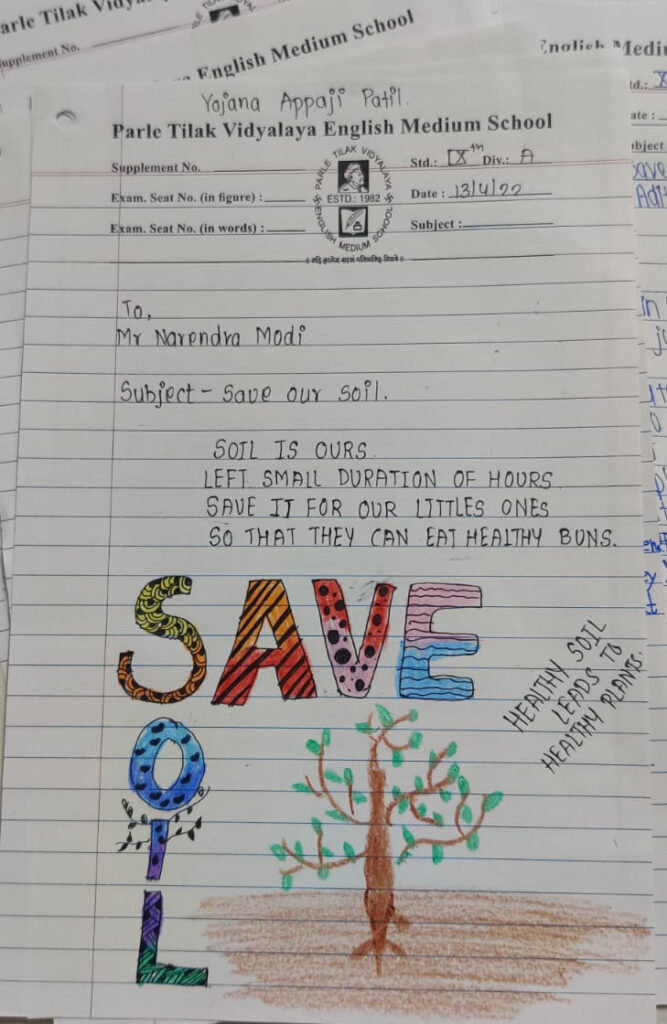 arle Tilak Vidya
Supplement No.
English Medium School
English Medi
Yojana Appaji Patil.
Parle Tilak Vidyalaya English Medium School
Supplement No.
Std.: IXth Div.: A
Exam. Seat No. (in figure) :
Date : 13/4/22
Exam. Seat No. (in words) :
Subject :
PARLE TILAK VIDYALAYA
ESTD.: 1982
ENGLISH MEDIUM SCHOOL
॥ नहि ज्ञानेन सदृशं पवित्रमिह विद्यते ॥
To,
Mr Narendra Modi
Subject - Save our soil.
SOIL IS OURS
LEFT SMALL DURATION OF HOURS
SAVE IT FOR OUR LITTLES ONES
SO THAT THEY CAN EAT HEALTHY BUNS.
SAVE
SOIL
HEALTHY SOIL
LEADS TO
HEALTHY PLANTS.